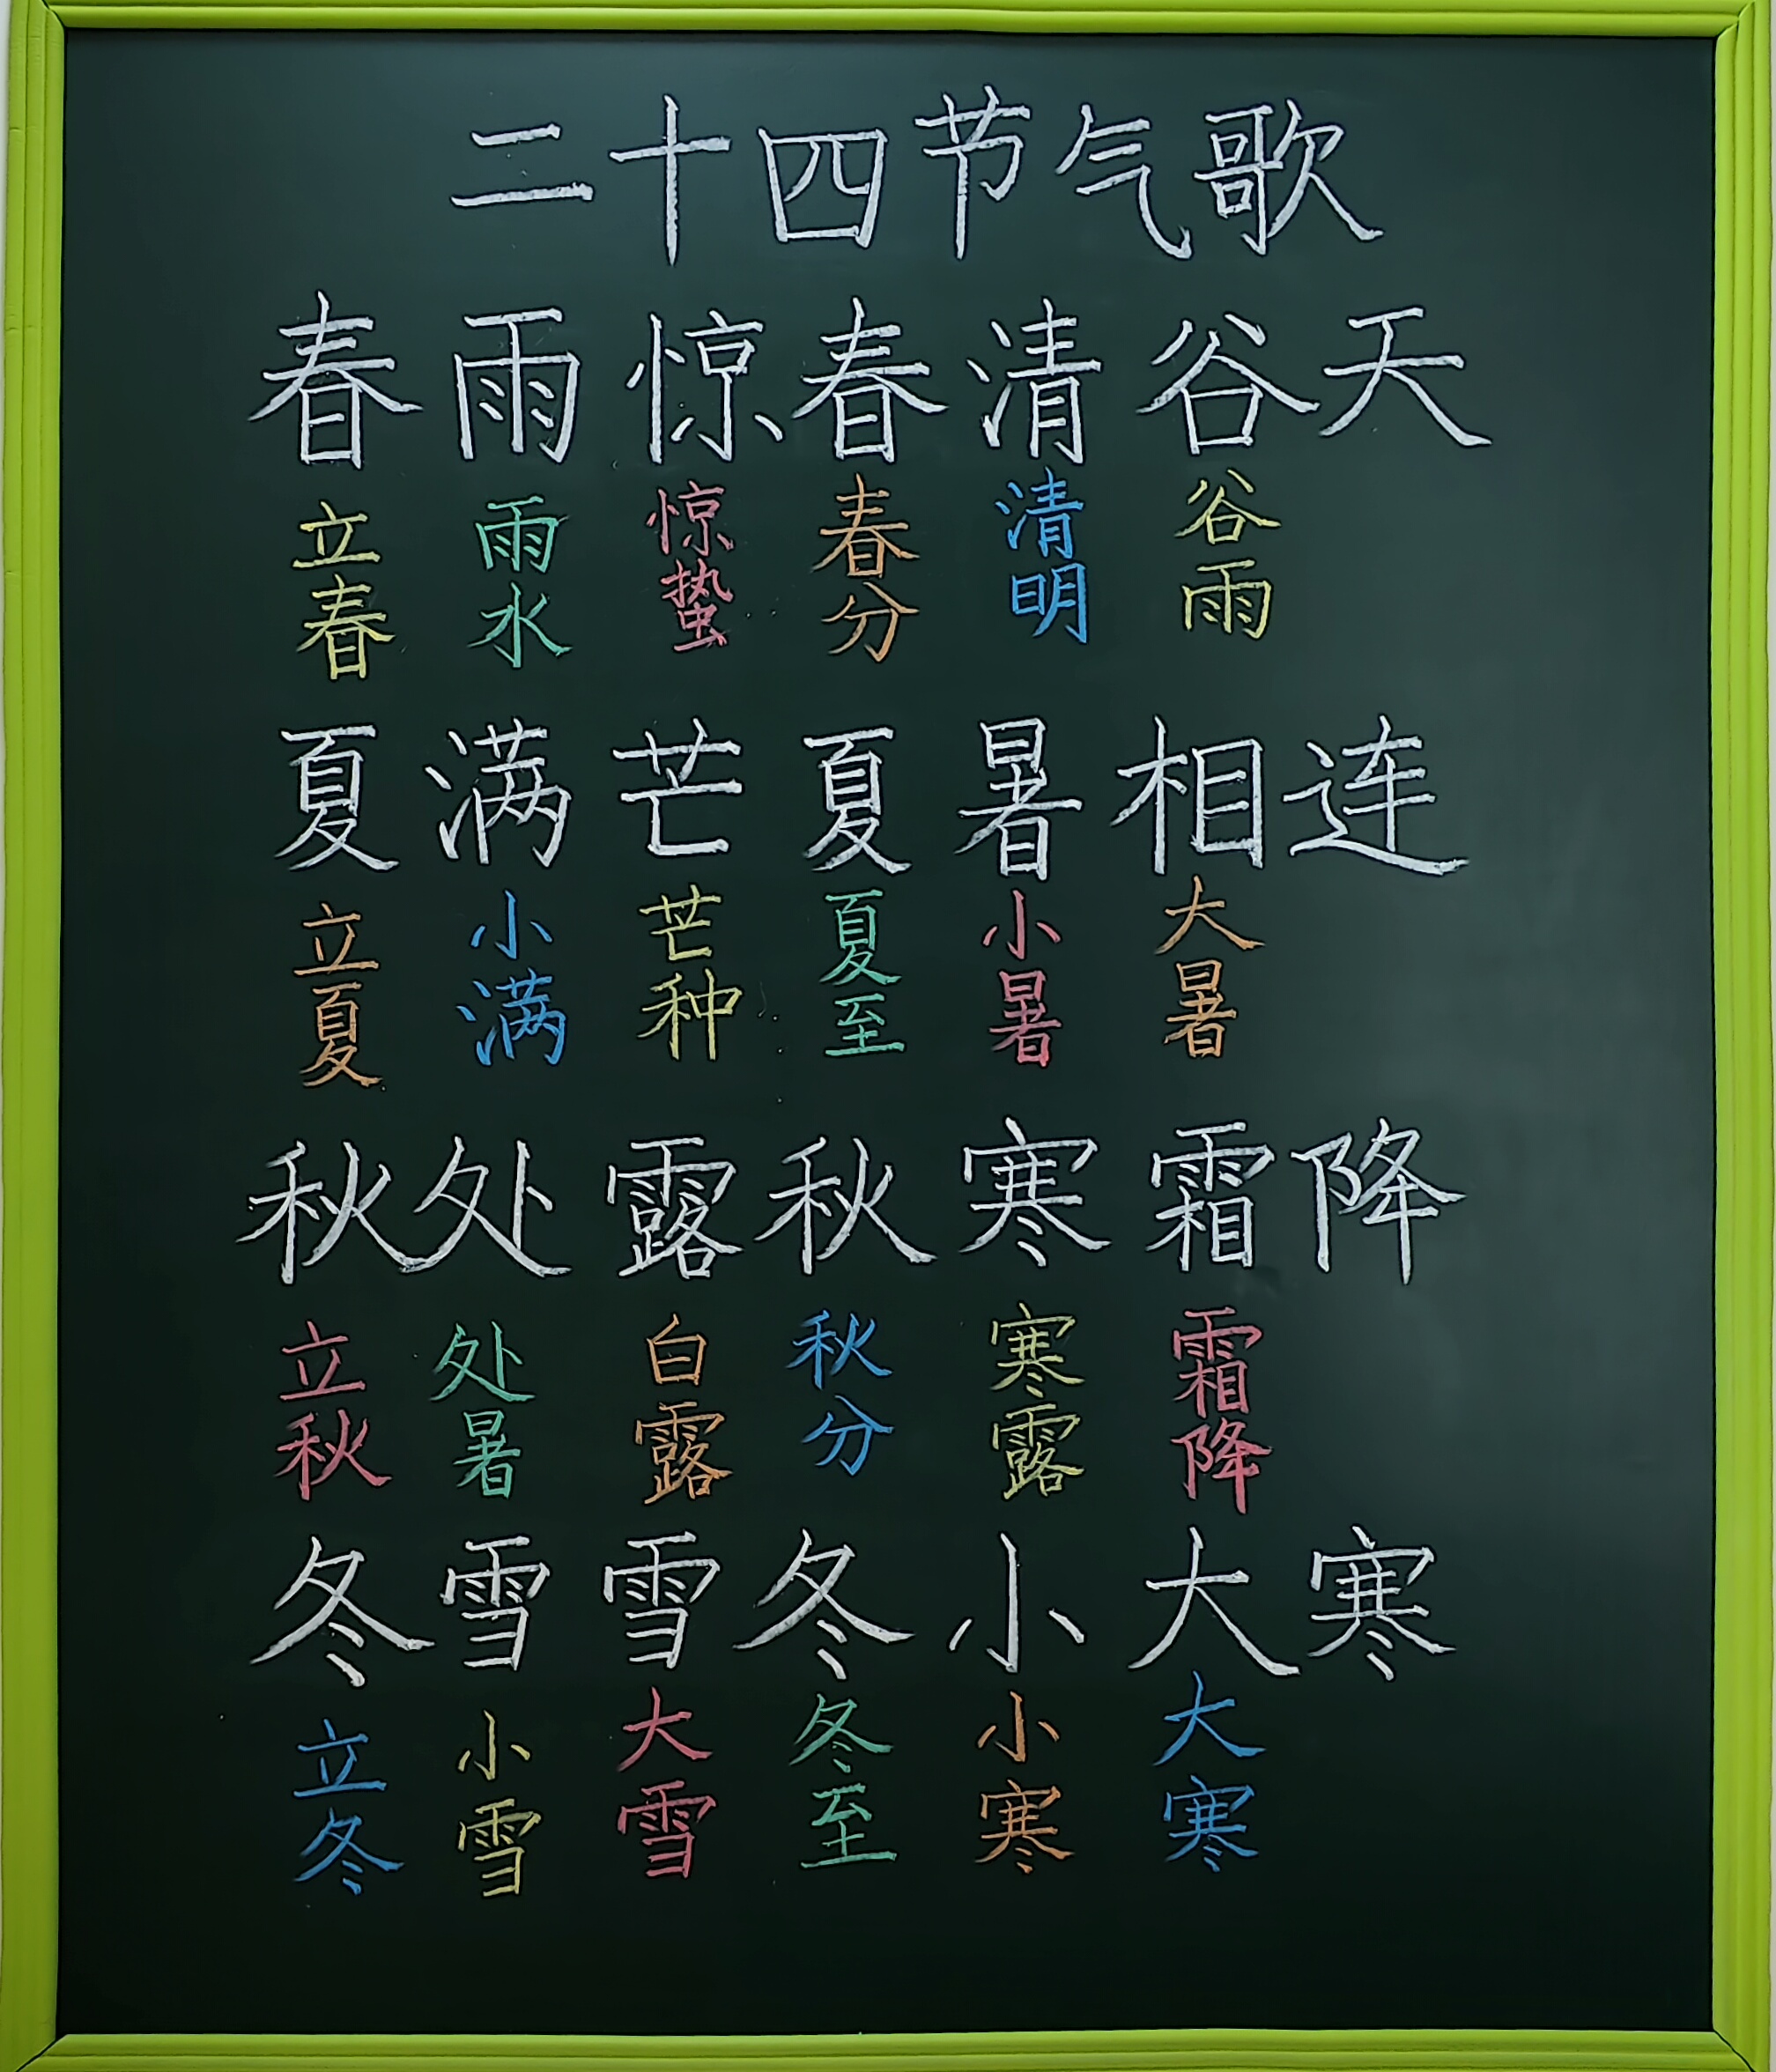 二十四节气歌
春雨惊春清谷天
立春 雨水 惊蛰 春分 清明 谷雨
夏满芒夏暑相连
立夏 小满 芒种 夏至 小暑 大暑
秋处露秋寒霜降
立秋 处暑 白露 秋分 寒露 霜降
冬雪雪冬小大寒
立冬 小雪 大雪 冬至 小寒 大寒